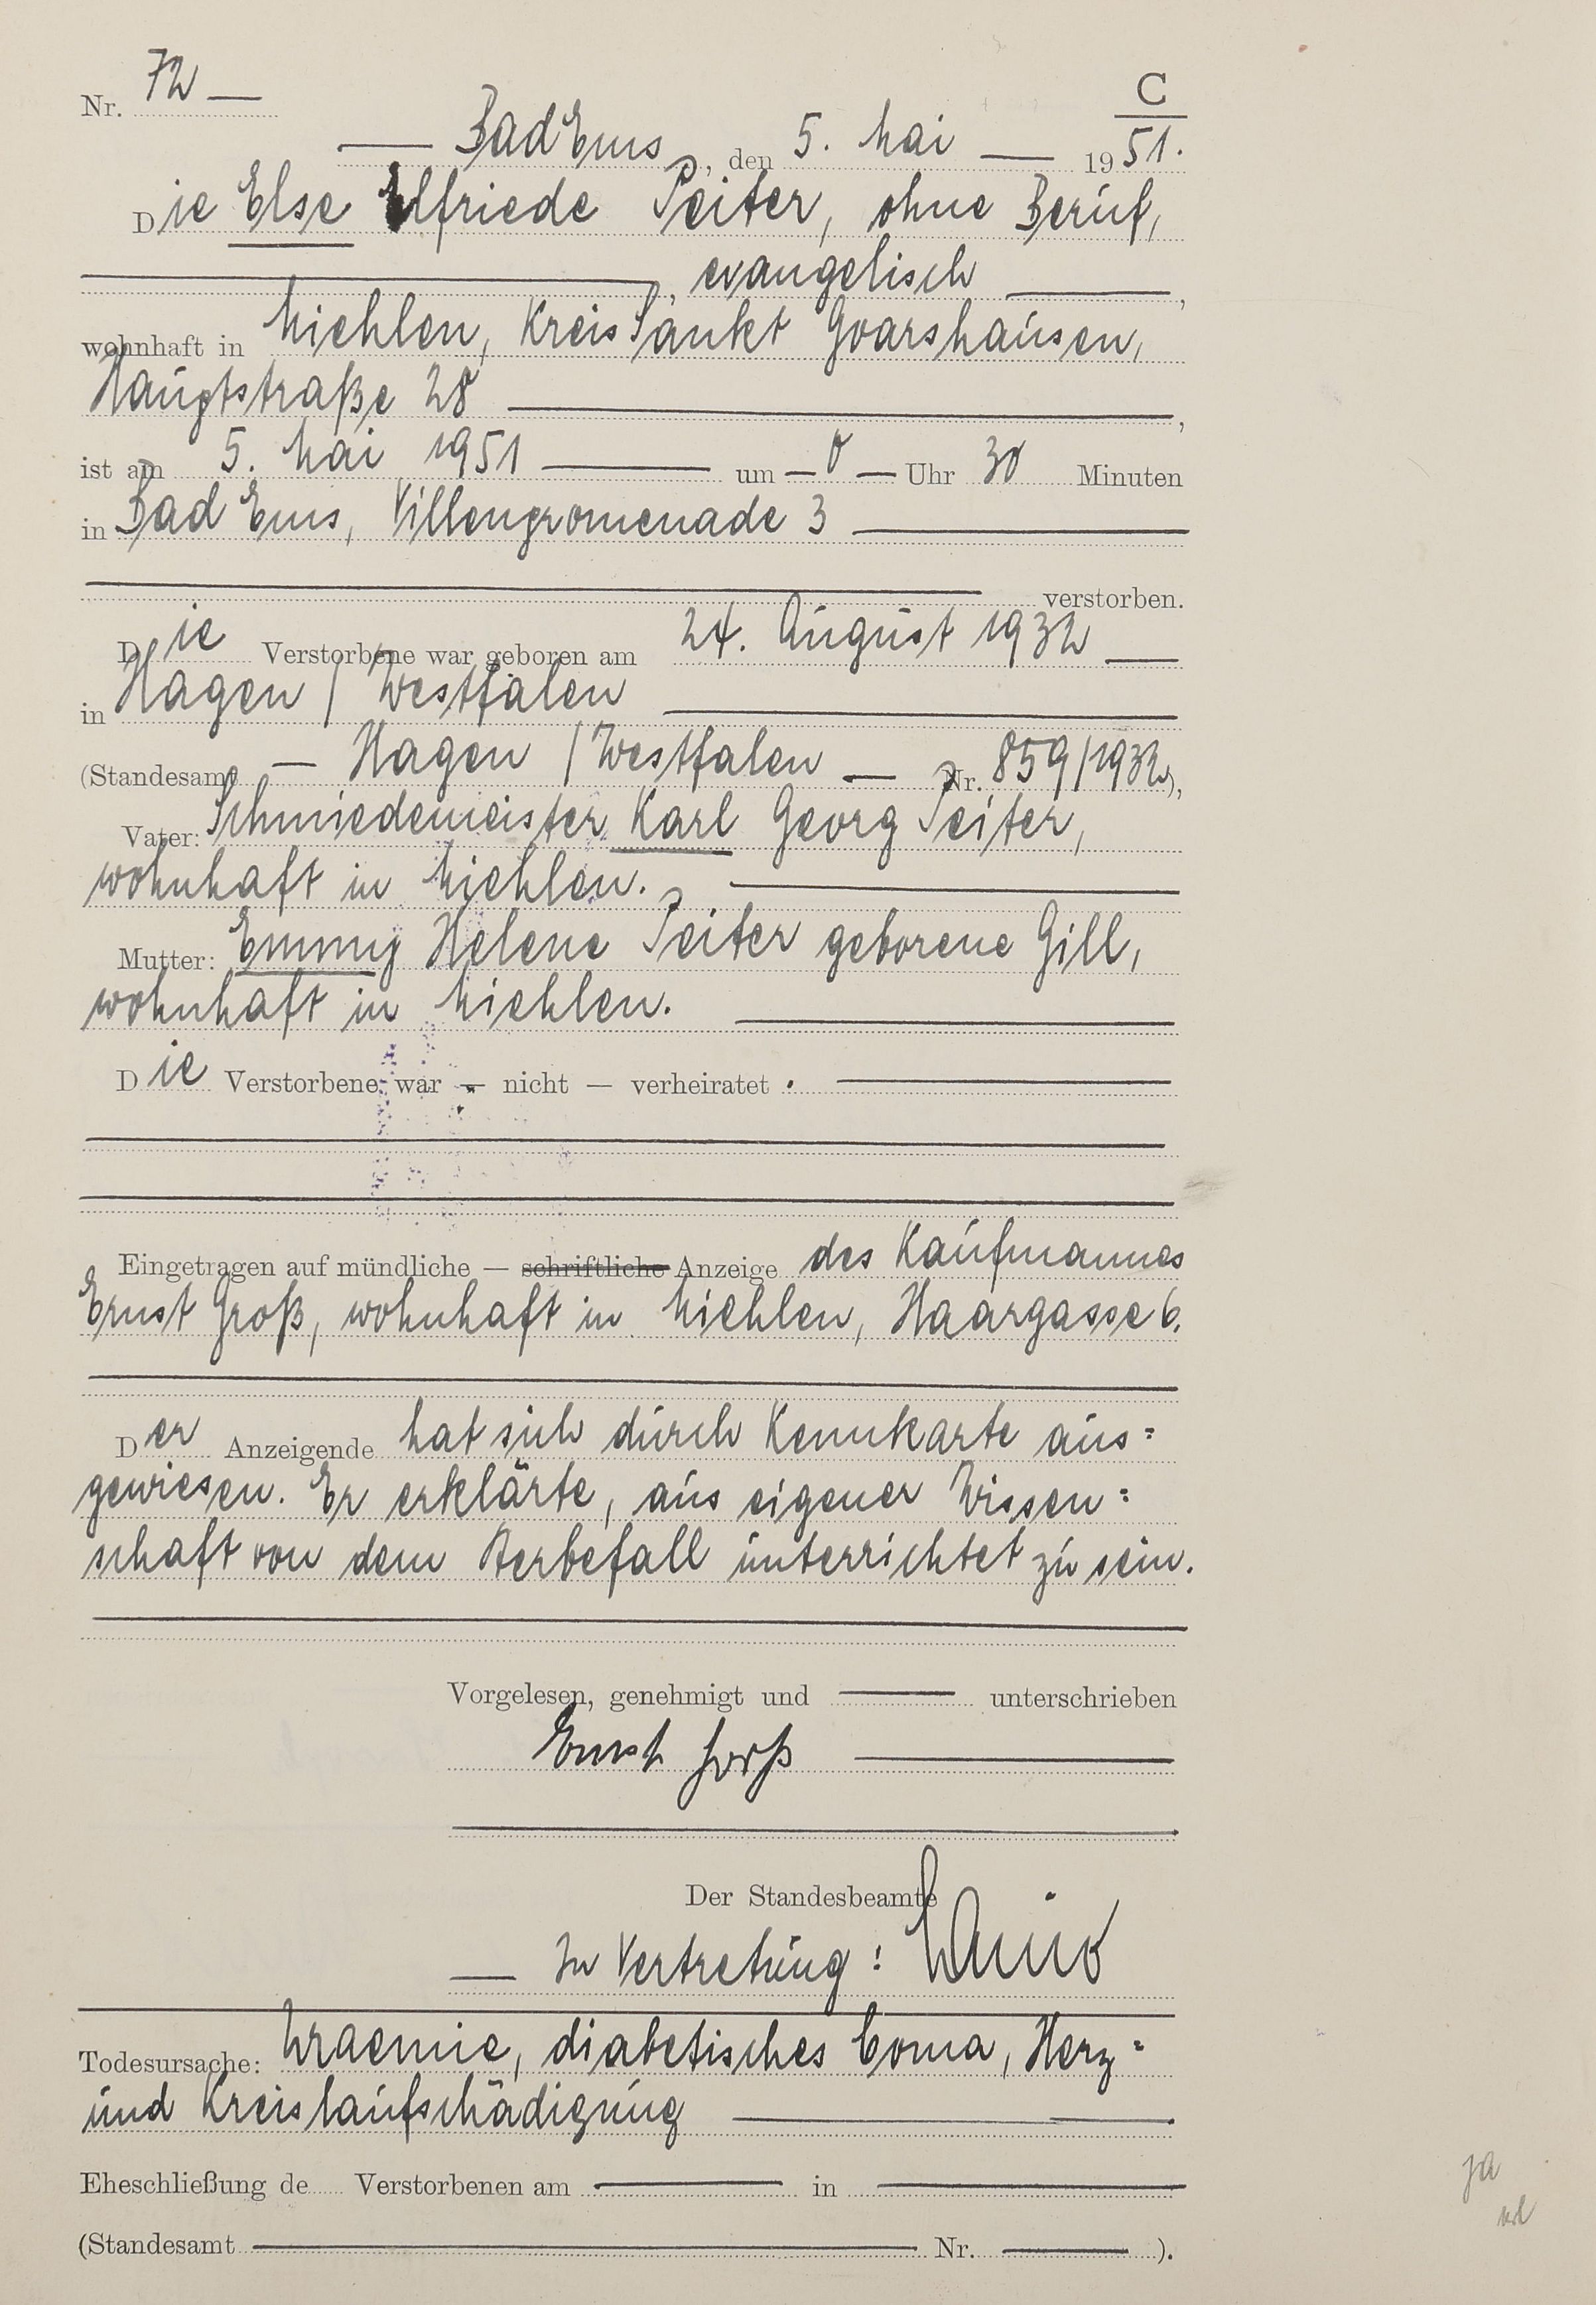 Nr. 72 —
C
— Bad Ems, den 5. Mai — 19 51.
Die Else Elfriede Peiter, ohne Beruf,
—, evangelisch —,
wohnhaft in Miehlen, Kreis Sankt Goarshausen,
Hauptstraße 28 —,
ist am 5. Mai 1951 — um — 0 — Uhr 30 Minuten
in Bad Ems, Villenpromenade 3 —
— verstorben.
Die Verstorbene war geboren am 24. August 1932 —
in Hagen / Westfalen —
(Standesamt — Hagen / Westfalen — Nr. 859/1932),
Vater: Schmiedemeister Karl Georg Peiter,
wohnhaft in Miehlen. —
Mutter: Emmy Helene Peiter geborene Gill,
wohnhaft in Miehlen. —
Die Verstorbene war — nicht — verheiratet. —
Eingetragen auf mündliche — schriftliche Anzeige des Kaufmannes
Ernst Groß, wohnhaft in Miehlen, Haargasse 6.
Der Anzeigende hat sich durch Kennkarte aus=
gewiesen. Er erklärte, aus eigener Wissen=
schaft von dem Sterbefall unterrichtet zu sein.
Vorgelesen, genehmigt und — unterschrieben
Ernst Groß —
Der Standesbeamte
— In Vertretung:
Todesursache: Uraemie, diabetisches Coma, Herz=
und Kreislaufschädigung —
Eheschließung de Verstorbenen am — in —
(Standesamt — Nr. — ).
ja